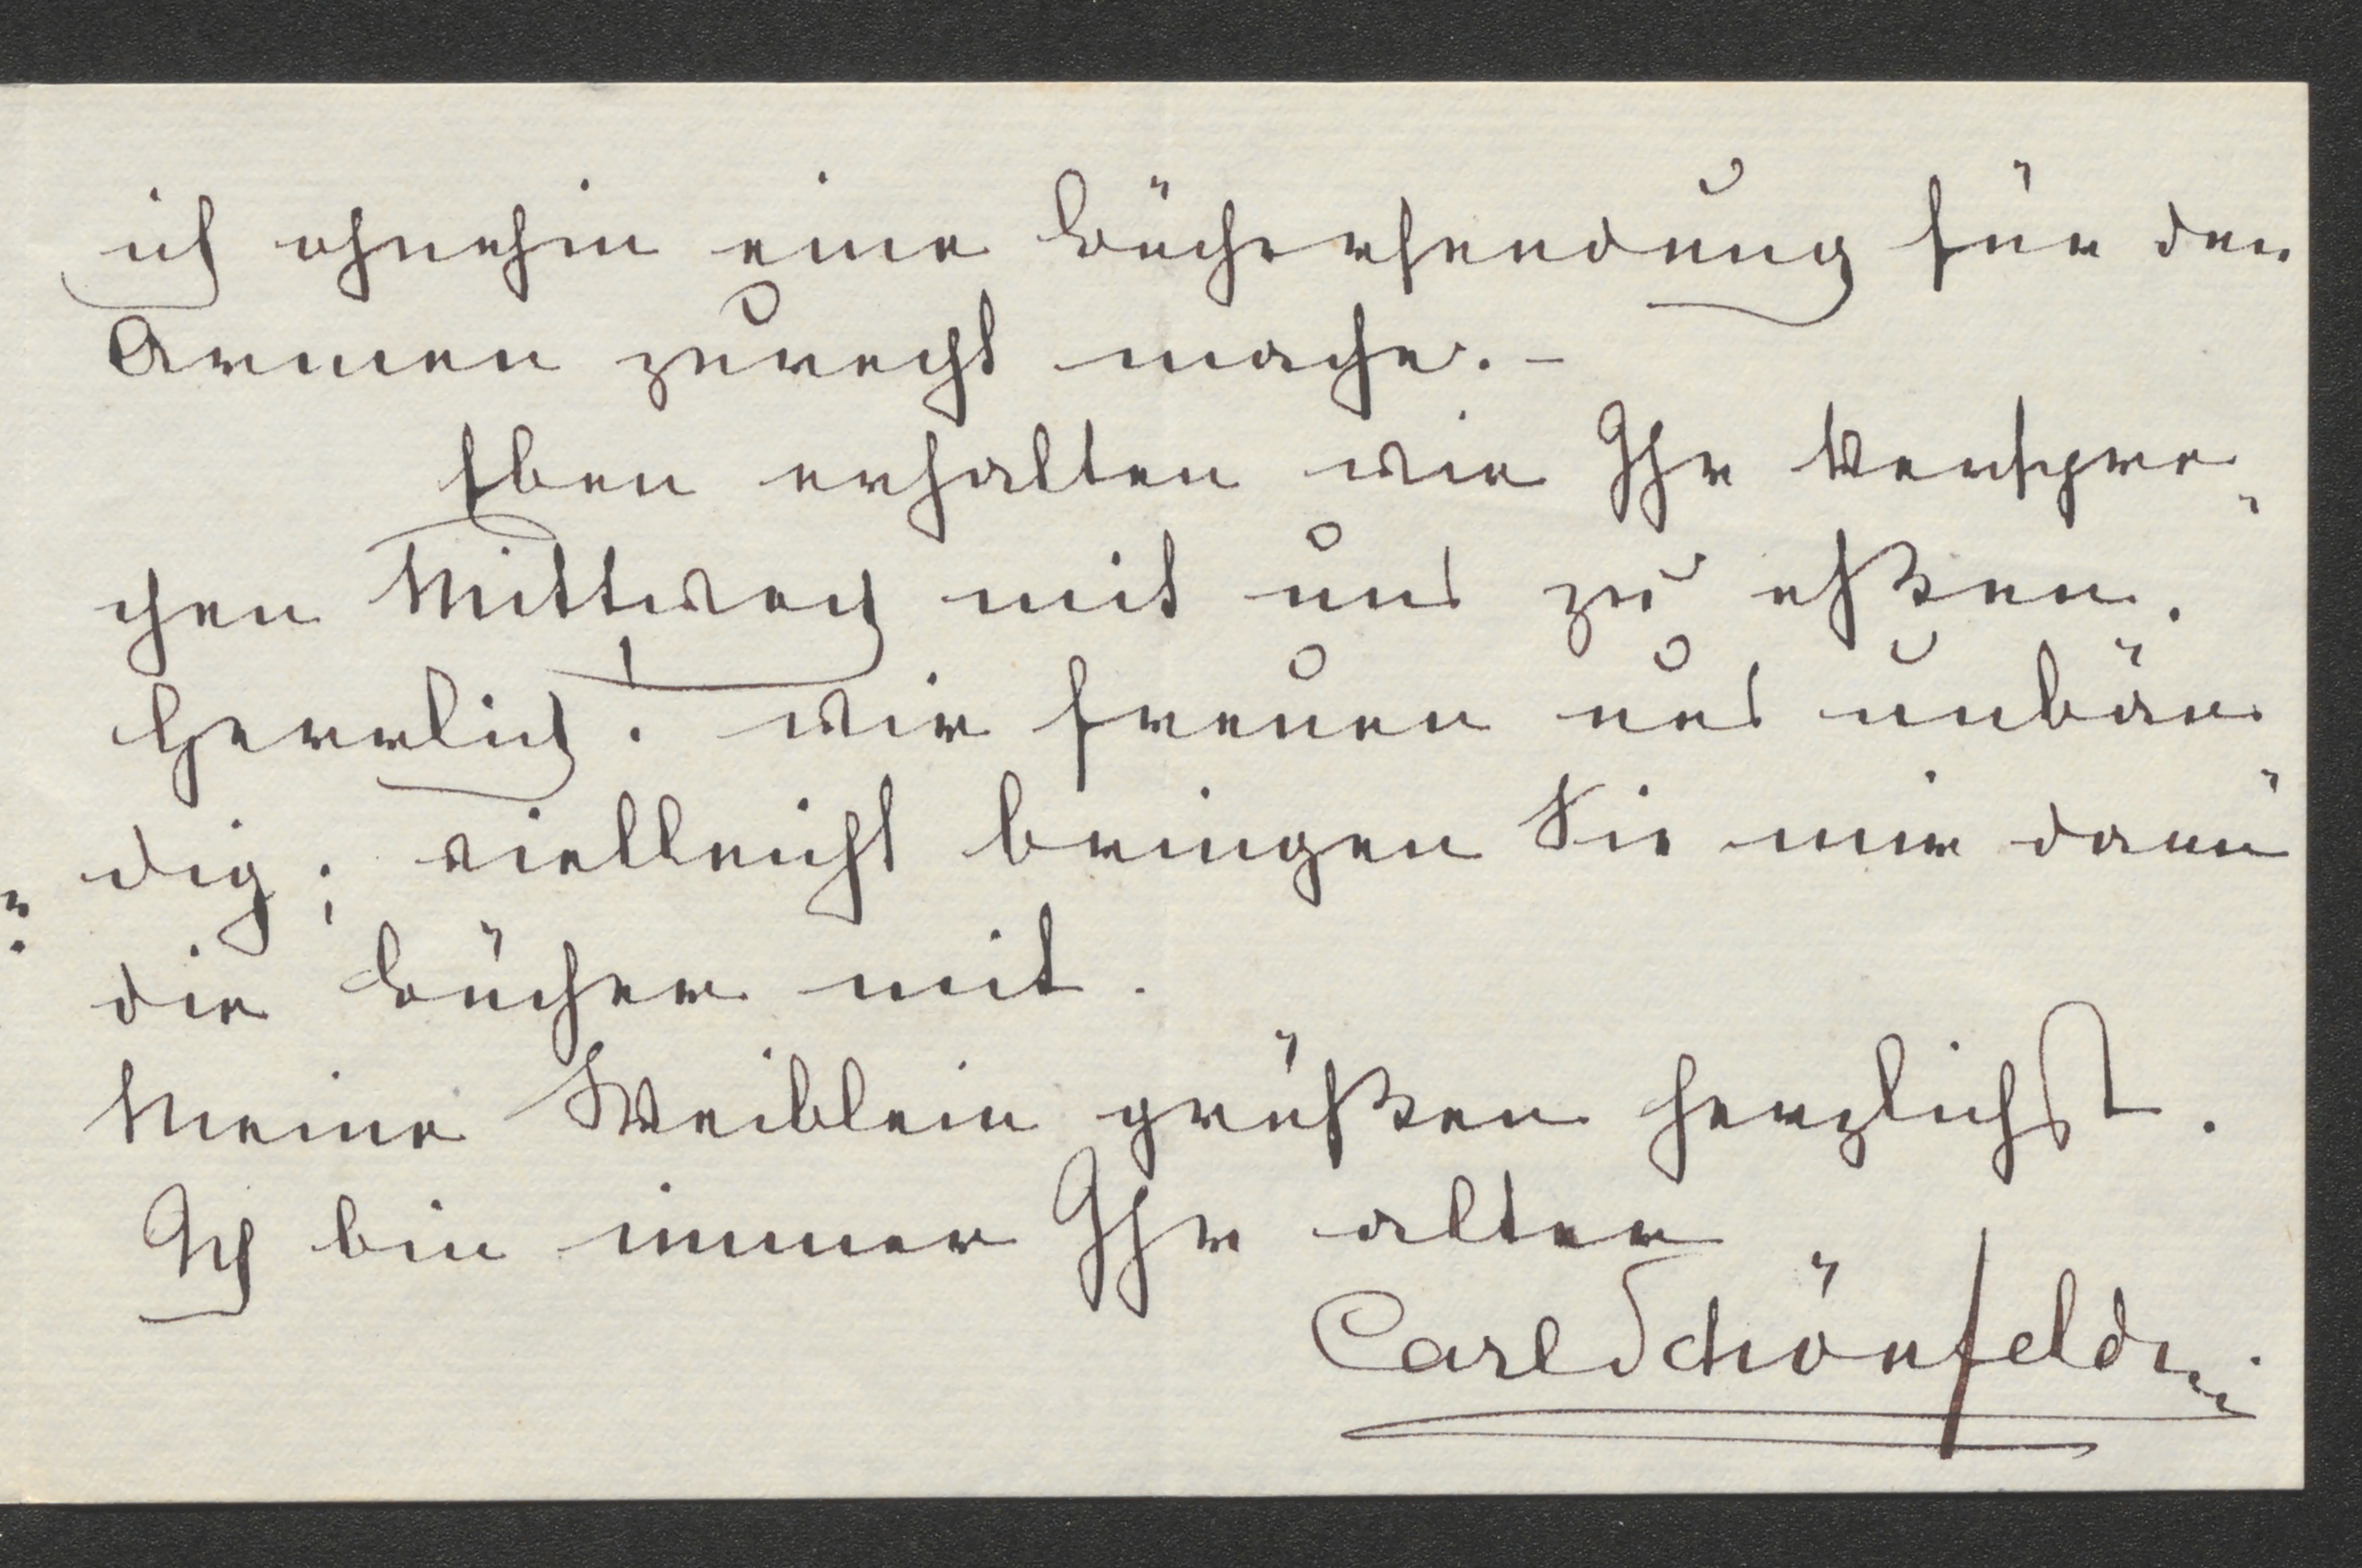 ich ohnehin eine Büchersendung für den
Armen zurecht mache. –
Eben erhalten wir Ihr Verspre-
chen Mittwoch mit uns zu eßen.
Herrlich! Wir freuen uns unbän-
dig; vielleicht bringen Sie mir dann
die Bücher mit.
Meine Weiblein grüßen herzlichst.
Ich bin immer Ihr alter
Carl Schönfeld